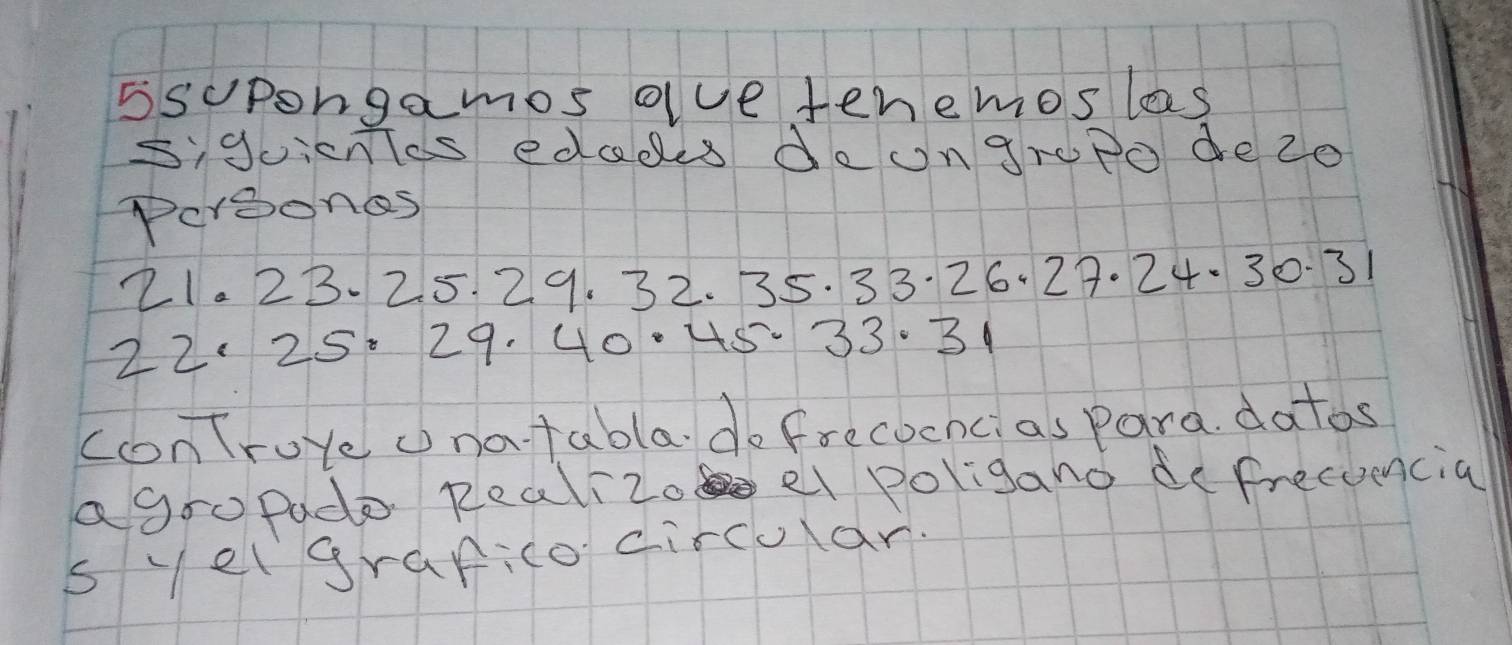 5 supongamos que tenemos las
siguientes edades de un grupo de 20
personas
21. 23. 25. 29. 32. 35. 33. 26. 27. 24. 30. 31
22. 25. 29. 40. 45. 33. 31
controye una tabla. de frecuencias para. datos
agrupado Realizo el poligano de frecuencia
s y el grafico circular.